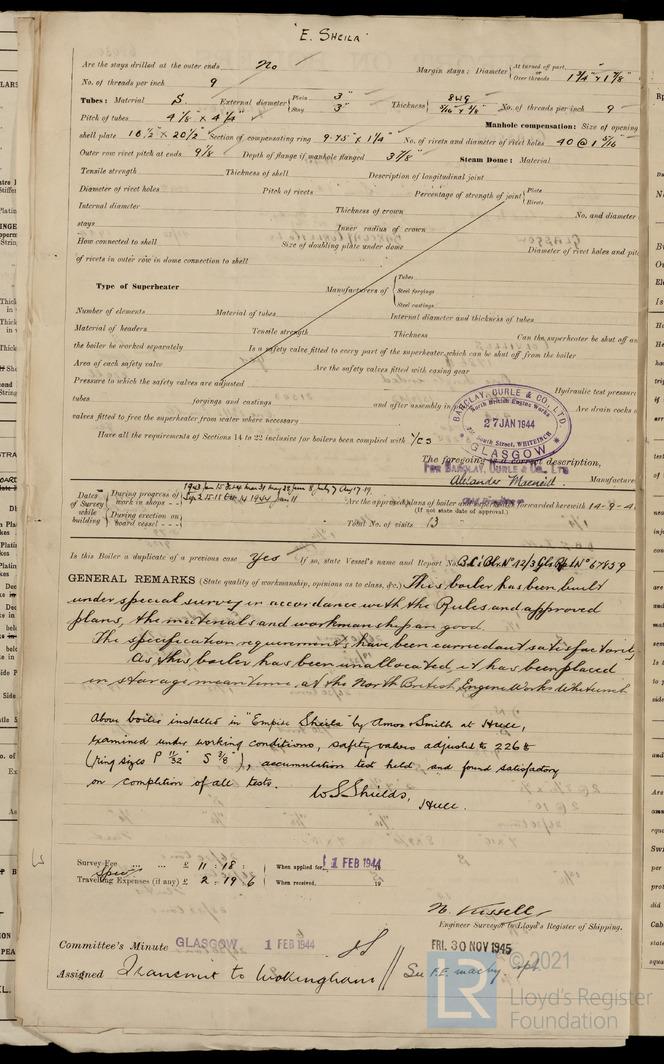 "E. SHEILA"
Are the stays drilled at the outer ends No Margin stays: Diameter { At turned off part, or Over threads 1 3/4" & 1 7/8"
No. of threads per inch 9
Tubes: Material S. External diameter { Plain 3" Stay 3" Thickness { 8 WG 5/16" & 3/8" No. of threads per inch 9
Pitch of tubes 4 1/8" x 4 1/4" Manhole compensation: Size of opening
shell plate 16 1/2" x 20 1/2" Section of compensating ring 9.75" x 1 1/4" No. of rivets and diameter of rivet holes 40 @ 1 5/16"
Outer row rivet pitch at ends 9 1/8 Depth of flange if manhole flanged 3 7/8" Steam Dome: Material
Tensile strength Thickness of shell Description of longitudinal joint
Diameter of rivet holes Pitch of rivets Percentage of strength of joint { Plate Rivets
Internal diameter Thickness of crown No. and diameter
stays Inner radius of crown
How connected to shell Size of doubling plate under dome Diameter of rivet holes and
of rivets in outer row in dome connection to shell
Type of Superheater Manufacturers of { Tubes Steel forgings Steel castings
Number of elements Material of tubes Internal diameter and thickness of tubes
Material of headers Tensile strength Thickness Can the superheater be shut off
the boiler be worked separately Is a safety valve fitted to every part of the superheater which can be shut off from the boiler
Area of each safety valve Are the safety valves fitted with easing gear
Pressure to which the safety valves are adjusted Hydraulic test pressure
tubes forgings and castings and after assembly in Are drain cocks
valves fitted to free the superheater from water where necessary
BARCLAY, CURLE & CO., LTD. North British Engine Works 27 JAN 1944 South Street, WHITEINCH GLASGOW
Have all the requirements of Sections 14 to 22 inclusive for boilers been complied with Yes
The foregoing is a correct description,
FOR BARCLAY, CURLE & CO., LTD.
Alexander Manufacturer
Dates of Survey while building { During progress of work in shops - - 1943 Jan 15 Feb 4 Mar 31 May 28 June 8 July 7 Aug 17.19 Sep 2.15.18 Oct 14 1944 Jan 11
During erection on board vessel - - - Are the approved plans of boiler and superheater forwarded herewith 14-9-4
(If not state date of approval.)
Total No. of visits 13
Is this Boiler a duplicate of a previous case Yes If so, state Vessel's name and Report No. B.C. Blr. No 12/3 Gls Rpt No 67839
GENERAL REMARKS (State quality of workmanship, opinions as to class, &c.) This boiler has been built
under special survey in accordance with the Rules and approved
plans, the materials and workmanship are good.
The specification requirements have been carried out satisfactorily
As this boiler has been unallocated it has been placed
in storage meantime at the North British Engine Works Whiteinch
Above boiler installed in "Empire Sheila" by Amos & Smith at Hull,
examined under working conditions, safety valves adjusted to 226 lb
(ring sizes P 11/32" S 3/8"), accumulation test held and found satisfactory
on completion of all tests. W S Shields,
Hull.
Survey Fee ... ... £ 11 : 18 : When applied for, 1 FEB 1944 19
Spec
Travelling Expenses (if any) £ 2 : 19 : 6 When received, 19
N. Russell
Engineer Surveyor to Lloyd's Register of Shipping.
Committee's Minute GLASGOW 1 FEB 1944 FRI. 30 NOV 1945
Assigned Transmit to Wokingham // See F.E. machy rpt.
© 2021
LR Lloyd's Register
Foundation